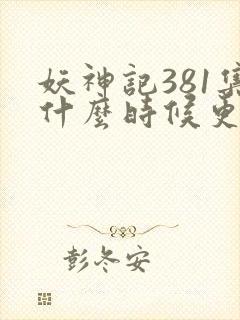 妖神記381集
什麼時候更
彭冬安